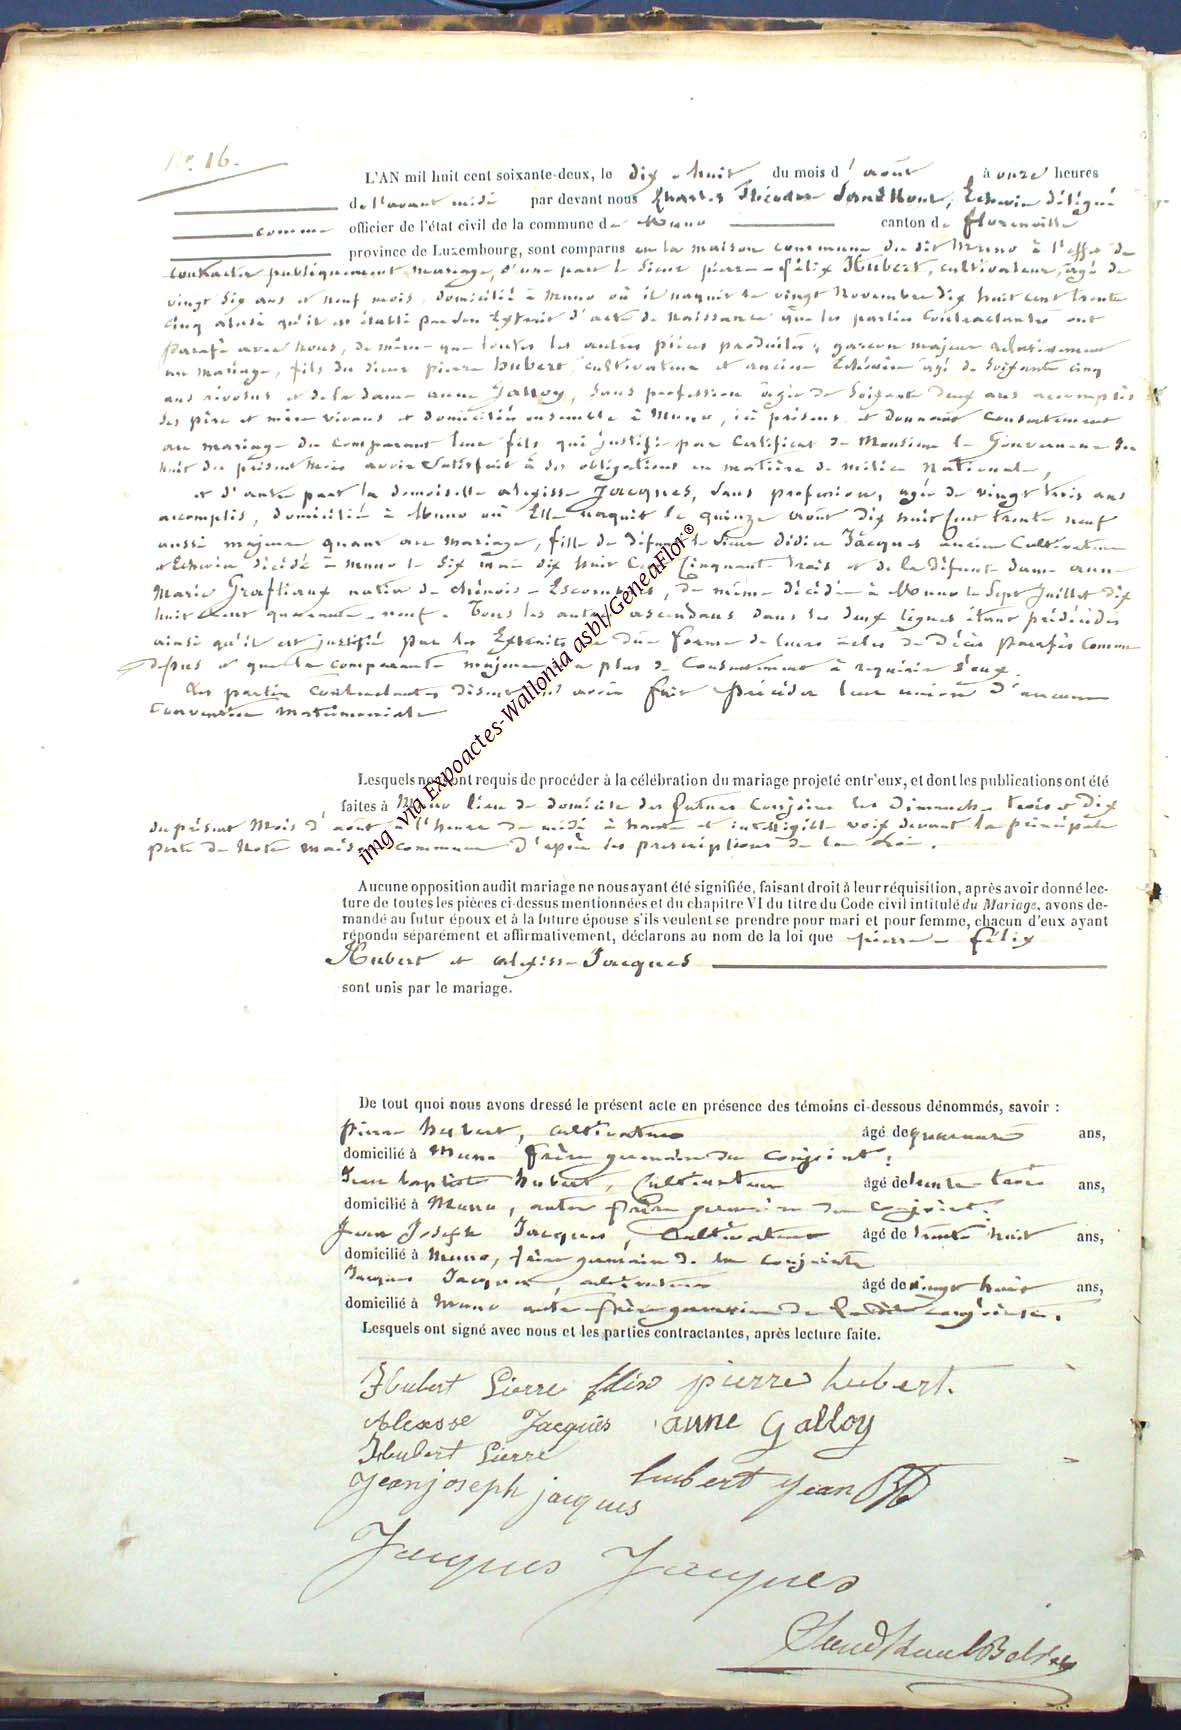 No 16.
L'AN mil huit cent soixante-deux, le dix-huit du mois d'août à onze heures
de l'avant midi par devant nous Charles Théodore Échevin délégué
comme officier de l'état civil de la commune de Muno canton de florenville
province de Luxembourg, sont comparus en la maison commune du dit Muno à l'effet de
contracter publiquement mariage, d'une part le Sieur pierre-félix Hubert, cultivateur, âgé de
vingt six ans et neuf mois, domicilié à Muno où il naquit le vingt Novembre dix huit cent trente
cinq ainsi qu'il est établi par son Extrait d'acte de naissance que les parties contractantes ont
parafé avec nous, de même que toutes les autres pièces produites, garçon majeur relativement
au mariage, fils du Sieur pierre hubert, cultivateur et ancien Échevin âgé de soixante cinq
ans révolus et de la dame anne Galloy, sans profession âgée de soixante deux ans accomplis
ses père et mère vivans et domiciliés ensemble à Muno, ici présens et donnant consentement
au mariage du comparant leur fils qui justifie par certificat de Monsieur le Gouverneur du
huit du présent mois avoir satisfait à ses obligations en matière de milice Nationale,
et d'autre part la demoiselle alexisse Jacques, sans profession, âgée de vingt trois ans
accomplis, domiciliée à Muno où Elle naquit le quinze août dix huit Cent trente neuf
aussi majeure quant au mariage, fille de défunt le Sieur Didier Jacques ancien Cultivateur
et Echevin décédé à Muno le six mai dix huit Cent Cinquante trois et de la défunte dame anne
Marie native de chénois, de même décédée à Muno le Sept Juillet dix
huit Cent quarante-neuf. Tous les autres ascendans dans les deux lignes étant prédécédés
ainsi qu'il est justifié par les Extraits en due forme de leurs actes de Décès parafés comme
dessus et que la comparante majeure n'a plus de Consentement à requérir d'eux.
Les parties Contractantes disent avoir fait Précéder leur union d'aucune
Convention matrimoniale
Lesquels nous ont requis de procéder à la célébration du mariage projeté entr'eux, et dont les publications ont été
faites à Muno lieu de domicile des futurs conjoints les Dimanche trois et dix
du présent Mois d'août à l'heure de midi à haute et intelligible voix devant la principale
porte de Notre maison commune d'après les prescriptions de la Loi.
Aucune opposition audit mariage ne nous ayant été signifiée, faisant droit à leur réquisition, après avoir donné lec-
ture de toutes les pièces ci-dessus mentionnées et du chapitre VI du titre du Code civil intitulé du Mariage, avons de-
mandé au futur époux et à la future épouse s'ils veulent se prendre pour mari et pour femme, chacun d'eux ayant
répondu séparément et affirmativement, déclarons au nom de la loi que pierre-félix
Hubert et alexisse Jacques
sont unis par le mariage.
De tout quoi nous avons dressé le présent acte en présence des témoins ci-dessous dénommés, savoir :
pierre hubert, cultivateur âgé de quarante ans,
domicilié à Muno frère germain du conjoint ;
Jean baptiste hubert, Cultivateur âgé de trente-trois ans,
domicilié à Muno, autre frère germain du conjoint ;
Jean Joseph Jacques, Cultivateur âgé de trente huit ans,
domicilié à Muno, frère germain de la conjointe
Jacques Jacques, cultivateur âgé de vingt huit ans,
domicilié à Muno autre frère germain de la dite conjointe.
Lesquels ont signé avec nous et les parties contractantes, après lecture faite.
Hubert Pierre félix pierre hubert.
Alexisse Jacques anne galloy
Hubert Pierre
Jean joseph jacques hubert jean Bte
Jacques Jacques
img via Expoactes-Wallonia asbl/GeneaFlor®